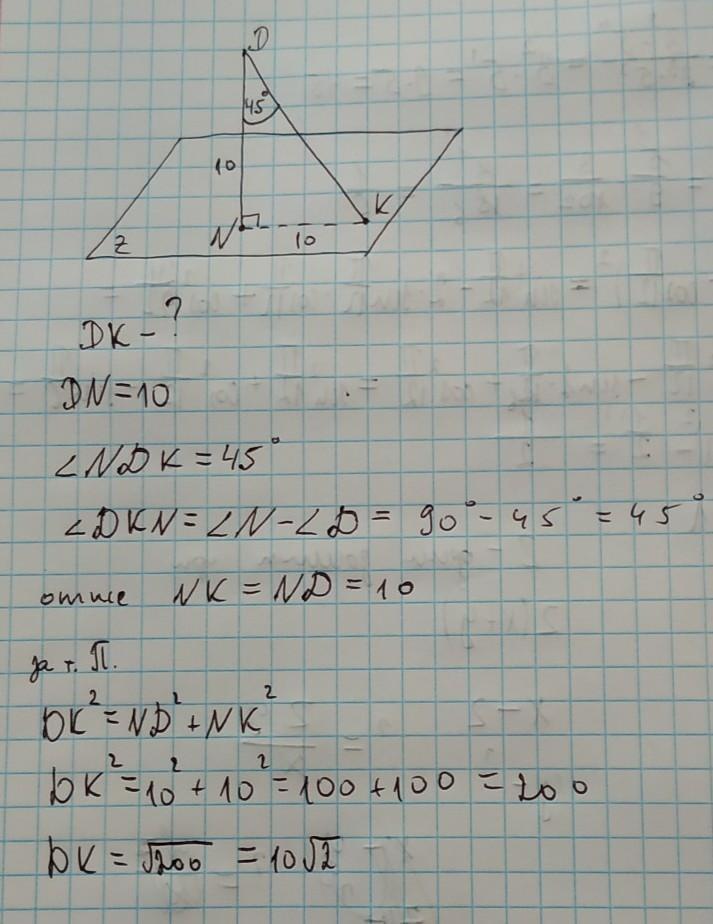 D
45°
10
N
10
K
2
DK - ?
DN = 10
∠NDK = 45°
∠DKN = ∠N - ∠D = 90° - 45° = 45°
отже NK = ND = 10
за т. П.
DK² = ND² + NK²
DK² = 10² + 10² = 100 + 100 = 200
DK = √200 = 10√2